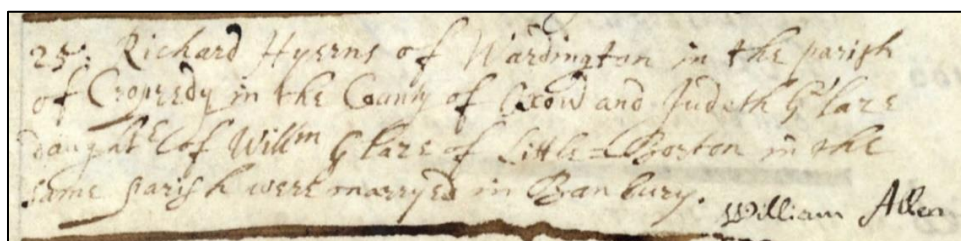 25: Richard Hyerns of Wardington in the parish
of Cropredy in the County of Oxōn and Judeth Glaze
daughter of Willm Glaze of Little=Borton in the
same parish were marryed in Banbury.
William Allen